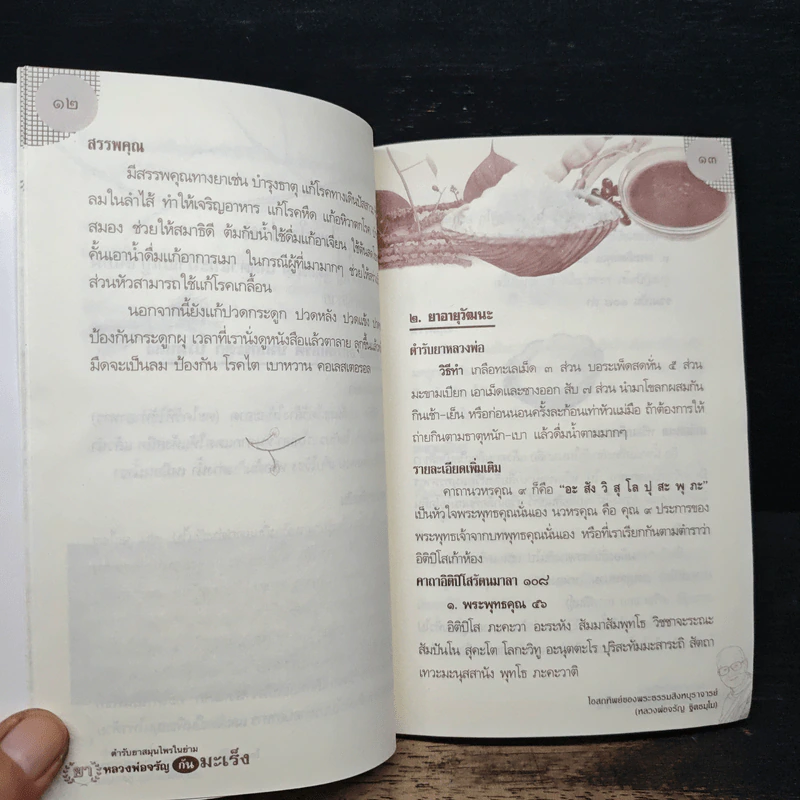 ๑๒
สรรพคุณ
มีสรรพคุณทางยาเช่น บำรุงธาตุ แก้โรคทางเดินปัสสาวะ
ลมในลำไส้ ทำให้เจริญอาหาร แก้โรคหืด แก้อหิวาตกโรค
สมอง ช่วยให้สมาธิดี ต้มกับน้ำใช้ดื่มแก้อาเจียน
คั้นเอาน้ำดื่มแก้อาการเมา ในกรณีผู้ที่เมามากๆ
ส่วนหัวสามารถใช้แก้โรคเกลื้อน
นอกจากนี้ยังแก้ปวดกระดูก ปวดหลัง ปวดแข้ง
ป้องกันกระดูกผุ เวลาที่เรานั่งดูหนังสือแล้วตาลาย ลุกขึ้นแล้ว
มืดจะเป็นลม ป้องกัน โรคไต เบาหวาน คอเลสเตอรอล
ตำรับยาสมุนไพรในย่าม
ยา หลวงพ่อจรัญ กัน มะเร็ง
๑๓
๒. ยาอายุวัฒนะ
ตำรับยาหลวงพ่อ
วิธีทำ เกลือทะเลเม็ด ๓ ส่วน บอระเพ็ดสดหั่น ๕ ส่วน
มะขามเปียก เอาเม็ดและซางออก สับ ๗ ส่วน นำมาโขลกผสมกัน
กินเช้า-เย็น หรือก่อนนอนครั้งละก้อนเท่าหัวแม่มือ ถ้าต้องการให้
ถ่ายกินตามธาตุหนัก-เบา แล้วดื่มน้ำตามมากๆ
รายละเอียดเพิ่มเติม
คาถานวหรคุณ ๙ ก็คือ "อะ สัง วิ สุ โล ปุ สะ พุ ภะ"
เป็นหัวใจพระพุทธคุณนั่นเอง นวหรคุณ คือ คุณ ๙ ประการของ
พระพุทธเจ้าจากบทพุทธคุณนั่นเอง หรือที่เราเรียกกันตามตำราว่า
อิติปิโสเก้าห้อง
คาถาอิติปิโสรัตนมาลา ๑๐๘
๑. พระพุทธคุณ ๕๖
อิติปิโส ภะคะวา อะระหัง สัมมาสัมพุทโธ วิชชาจะระณะ
สัมปันโน สุคะโต โลกะวิทู อะนุตตะโร ปุริสะทัมมะสาระถิ สัตถา
เทวะมะนุสสานัง พุทโธ ภะคะวาติ
โอสถทิพย์ของพระธรรมสิงหบุราจารย์
(หลวงพ่อจรัญ ฐิตธมฺโม)